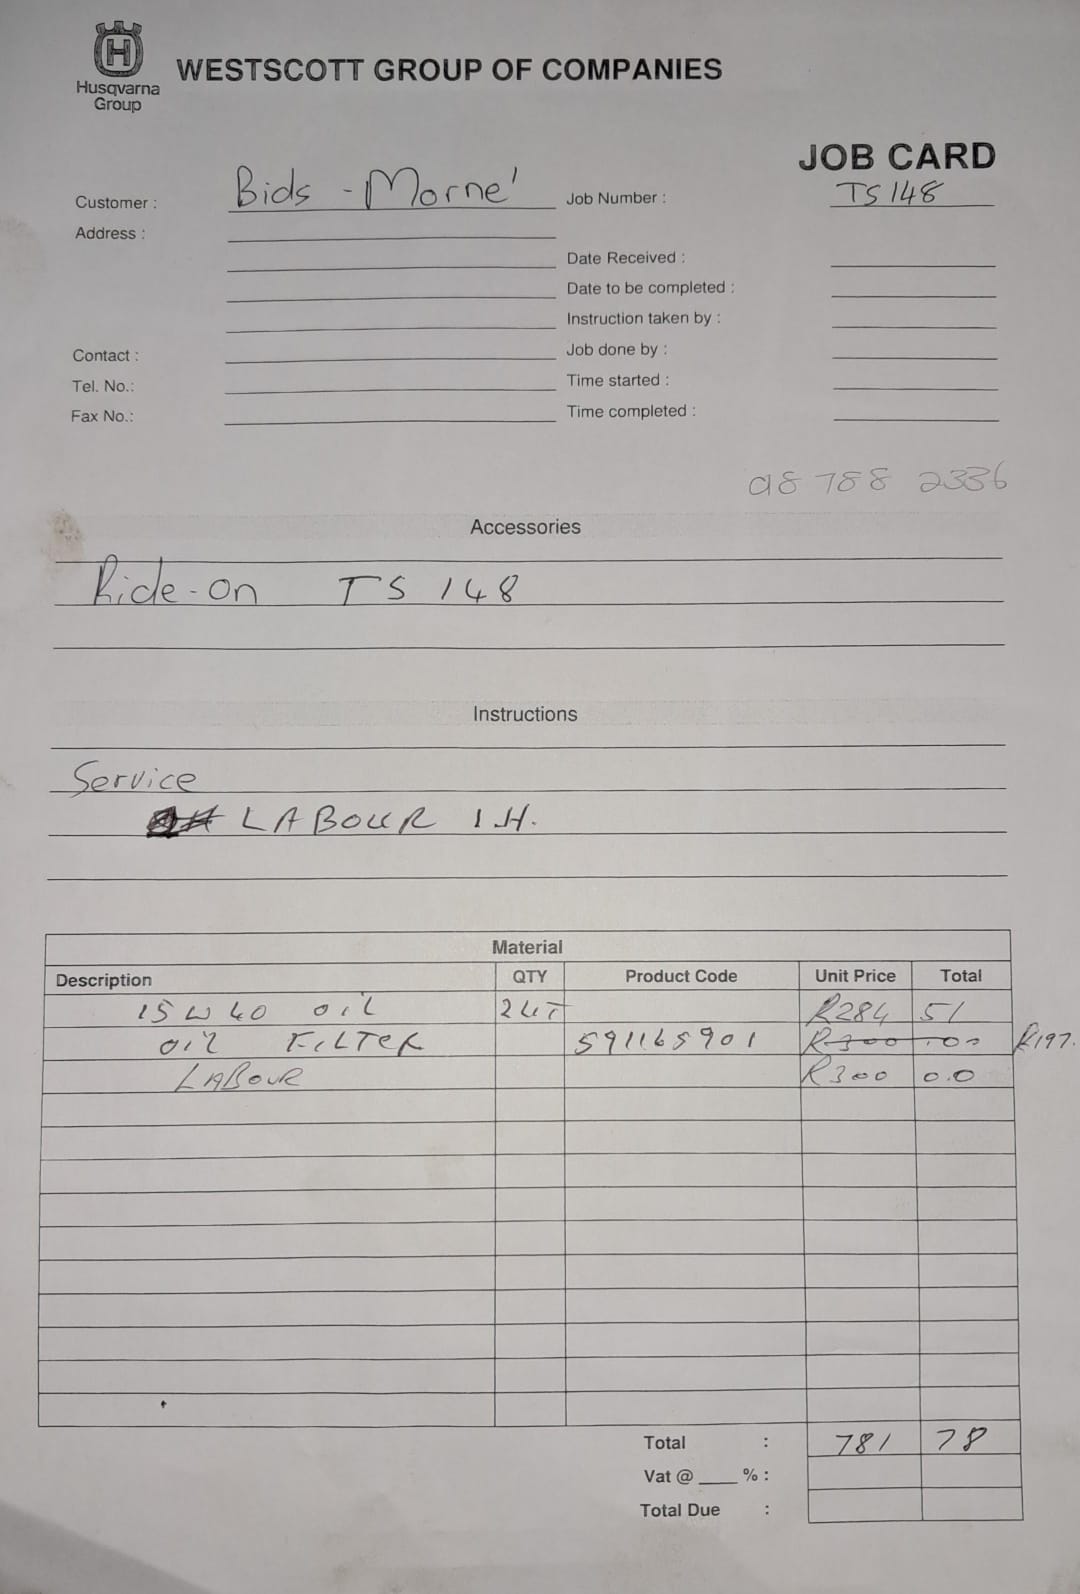 H
Husqvarna
Group
WESTSCOTT GROUP OF COMPANIES
JOB CARD
Customer : Bids - Morne' Job Number : TS 148
Address :
Date Received :
Date to be completed :
Instruction taken by :
Contact : Job done by :
Tel. No.: Time started :
Fax No.: Time completed :
788 2336
Accessories
Ride-on TS 148
Instructions
Service
LABOUR 1 H.
Material
Description QTY Product Code Unit Price Total
15W40 OIL 2LIT R284 51
OIL FILTER 591165901 R300 .00 R197.
LABOUR R300 0.0
Total : 781 78
Vat @ ____ % :
Total Due :